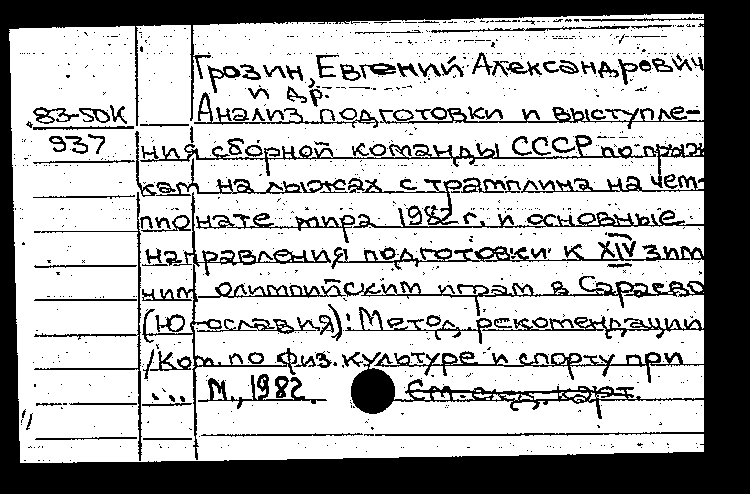 Грозин, Евгений Александрович
и др.
83-50К
937
Анализ подготовки и выступле-
ния сборной команды СССР по прыж
кам на лыжах с трамплина на чем-
пионате мира 1982 г. и основные
направления подготовки к XIV зим
ним олимпийским играм в Сараево
(Югославия): Метод. рекомендации
/Ком. по физ. культуре и спорту при
... М., 1982.
См. след. карт.